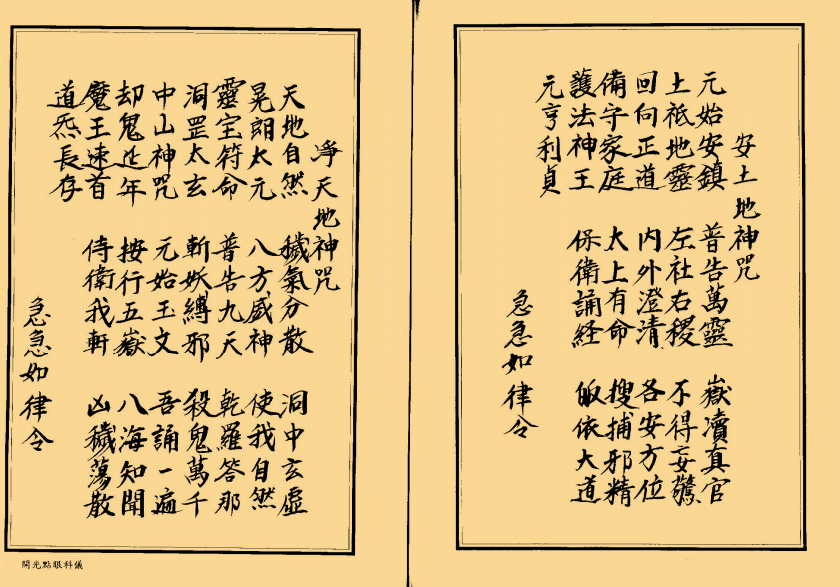 安土地神咒
元始安鎮 普告萬靈 嶽瀆真官
土祇地靈 左社右稷 不得妄驚
回向正道 內外澄清 各安方位
備守家庭 太上有命 搜捕邪精
護法神王 保衛誦経 皈依大道
元亨利貞
急急如律令
淨天地神咒
天地自然 穢氣分散 洞中玄虛
晃朗太元 八方威神 使我自然
靈宝符命 普告九天 乾羅答那
洞罡太玄 斬妖縛邪 殺鬼萬千
中山神咒 元始玉文 吾誦一遍
却鬼延年 按行五嶽 八海知聞
魔王速首 侍衛我軒 凶穢蕩散
道炁長存
急急如律令
開光點眼科儀